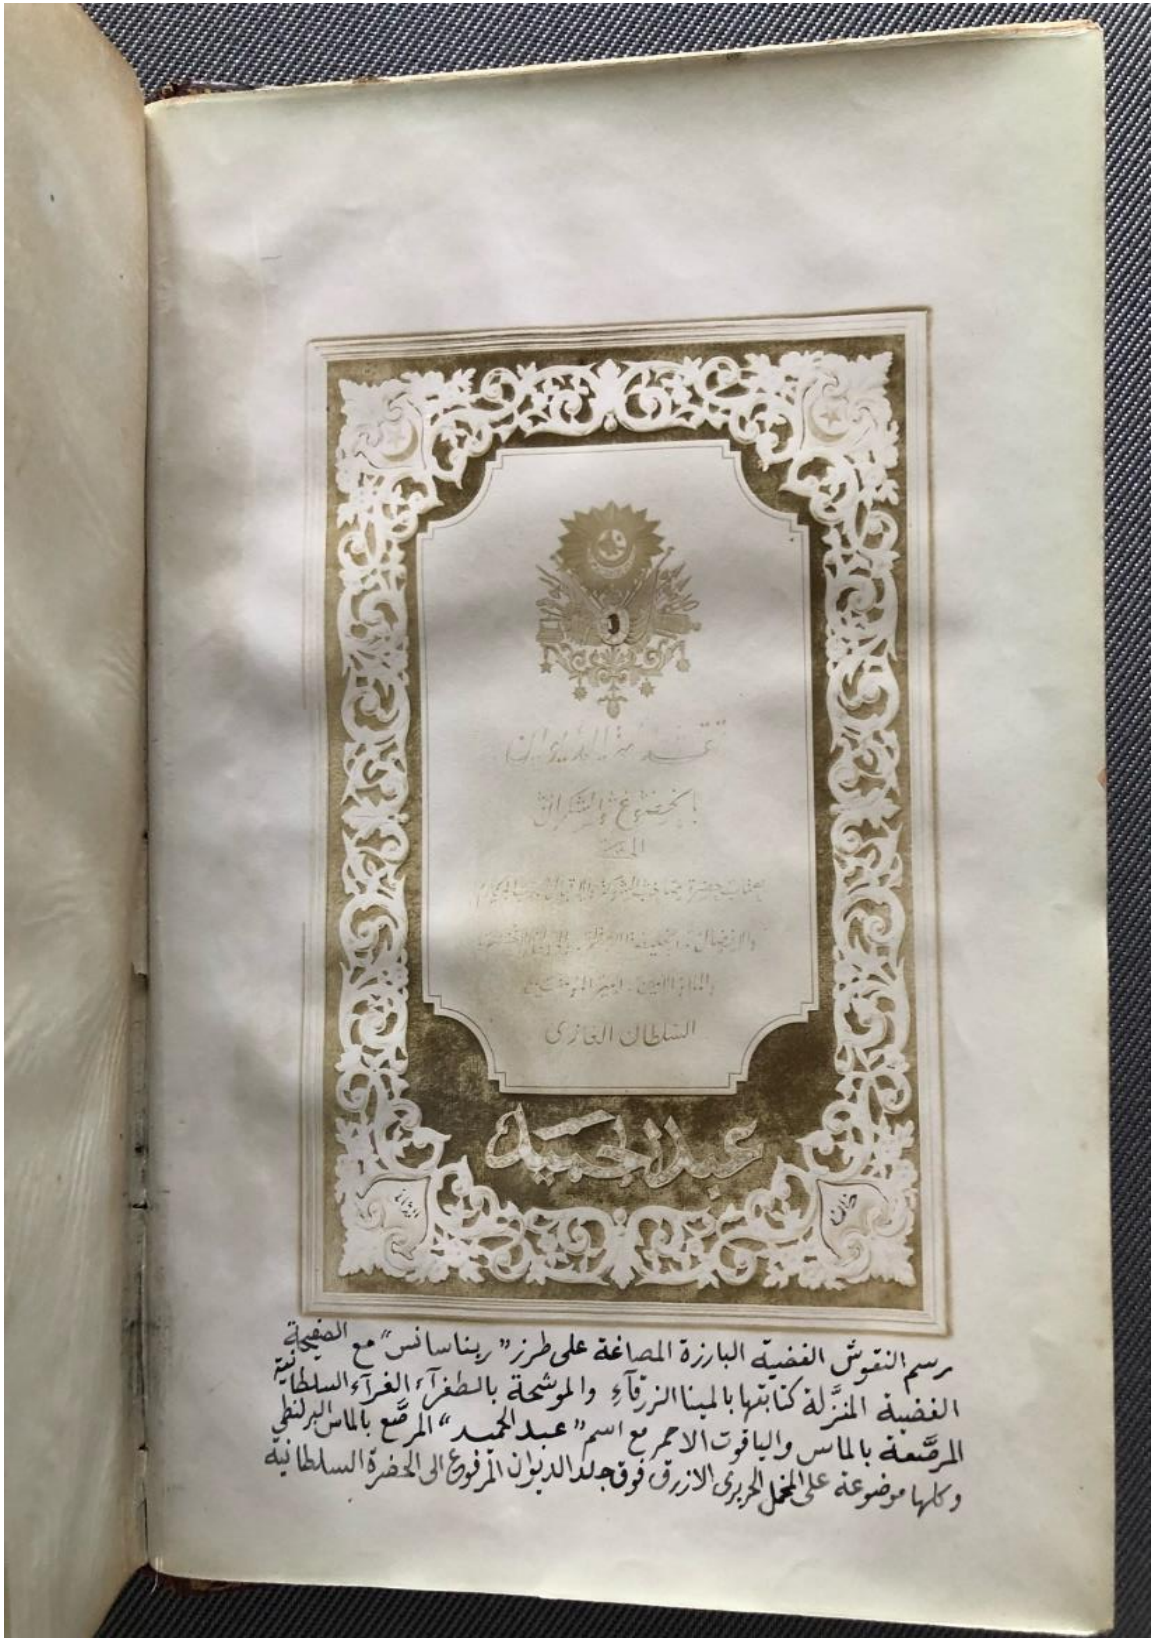 تقدمة الديوان
بالخضوع والشكران
الى
حضرة صاحب الشوكة
امير المؤمنين
السلطان الغازي
عبد الحميد
خان
الثاني
رسم النقوش الفضية البارزة المصاغة على طرز "ريناسانس" مع الصفيحة
الفضية المنزَّلة كتابتها بالمينا الزرقآءِ والموشحة بالطغرآء الغرآء السلطانية
المرصَّعة بالماس والياقوت الاحمر مع اسم "عبد الحميد" المرصَّع بالماس البرلنطي
وكلها موضوعة على المخمل الحريري الازرق فوق جلد الديوان المرفوع الى الحضرة السلطانية